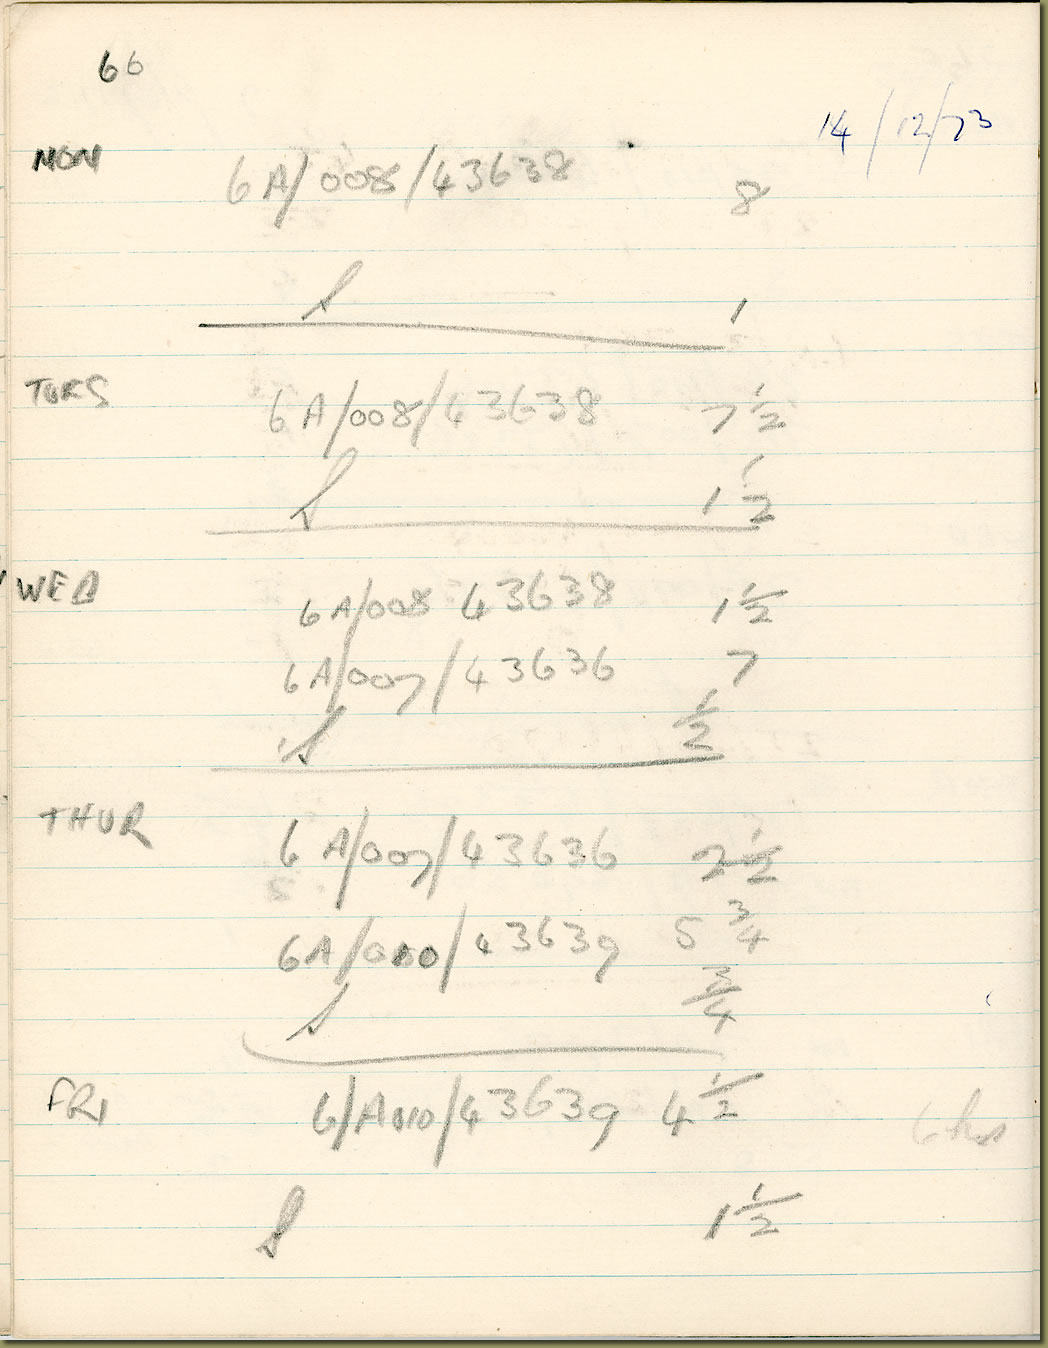 66
14/12/73
MON 6A/008/43638 8
S 1
TUES 6A/008/43638 7 1/2
S 1 1/2
WED 6A/008 43638 1 1/2
6A/007/43636 7
S 1/2
THUR 6A/007/43636 2 1/2
6A/010/43639 5 3/4
S 3/4
FRI 6/A010/43639 4 1/2 6 hrs
S 1 1/2